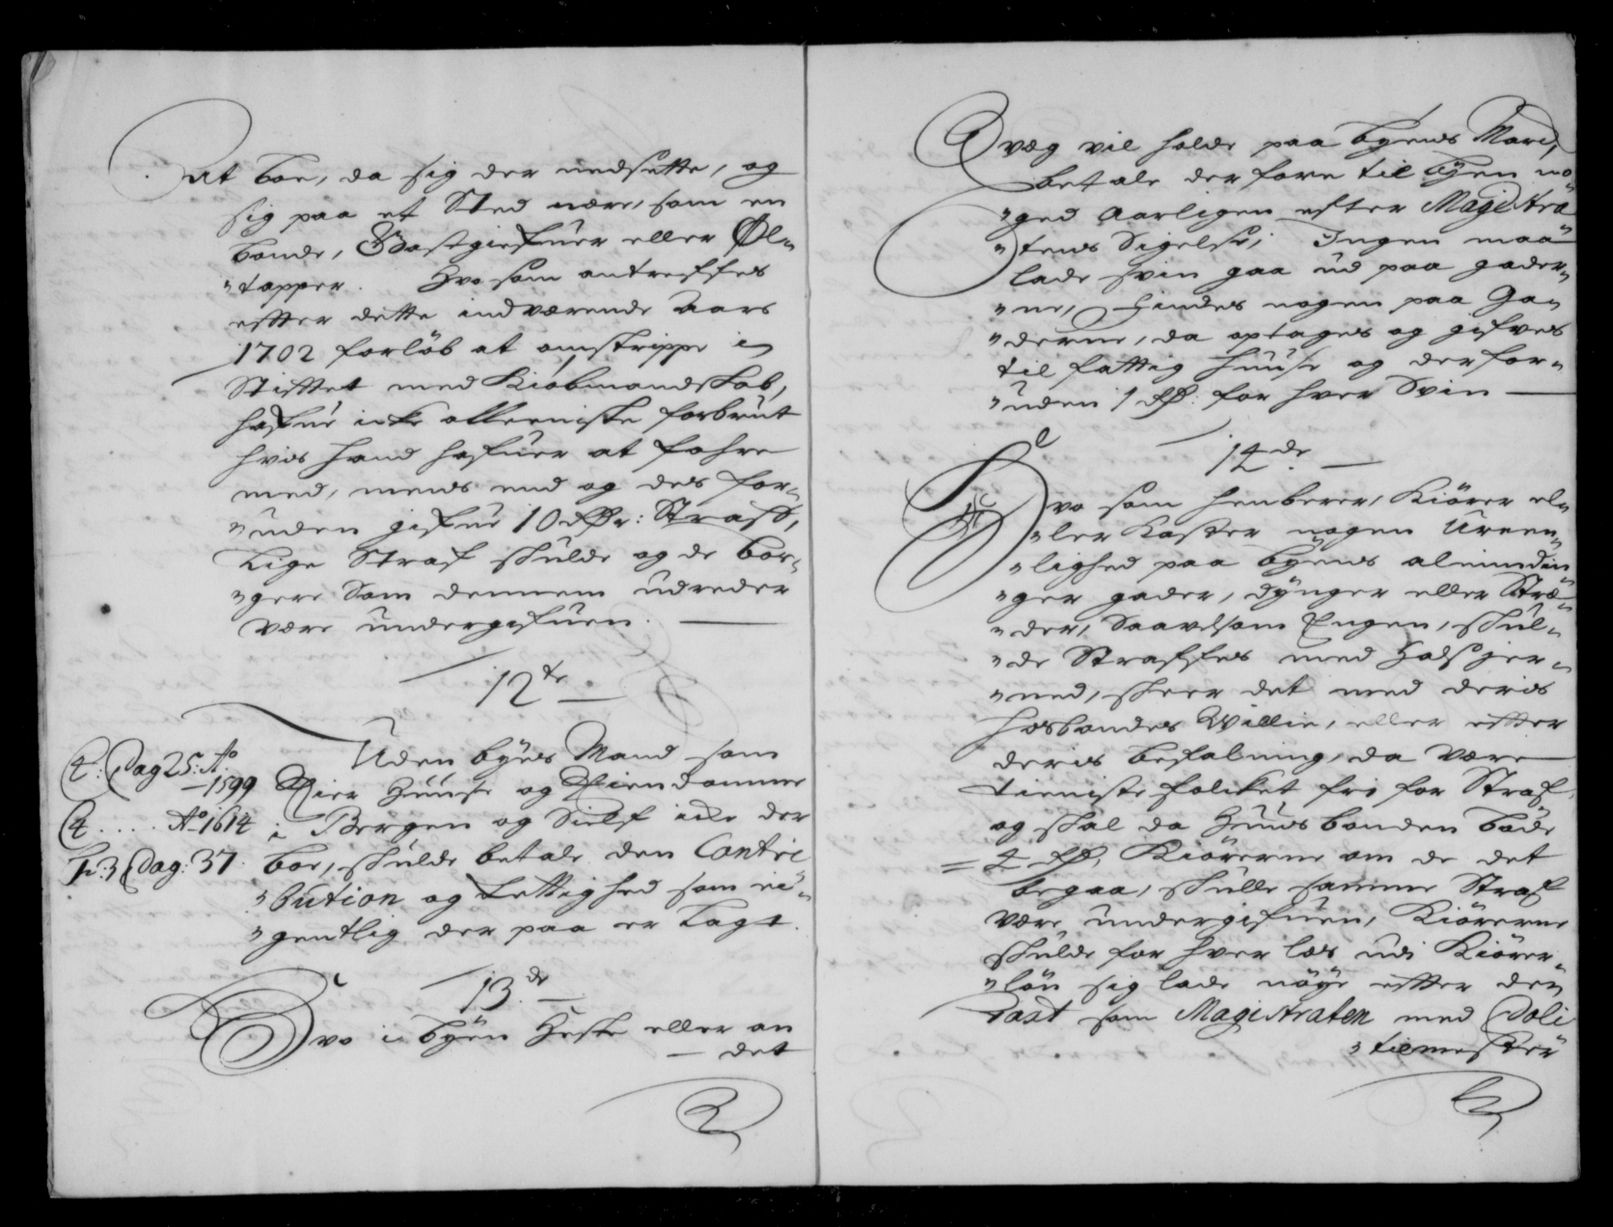 at boe, da sig der nedsette, og
sig paa et Sted nære, som en
bonde, Gastgiefuer eller Øl-
"tapper. Hvo som antreffes
efter dette indværende Aars
1702 forløb at omstrippe i
Stiftet med Kiøbmandskab,
hafue icke alleeniste forbrut
hvis hand hafuer at fahre
med, mens end og des for-
"uden gifue 10 Rdr: Straf,
Lige Straf skulde og de bor-
"gere Som dennem udreder
være undergifuen.
12te
Uden byes Mand som
Q: Pag 25: Ao 1599
Eier Huuse og Eiendomme
Q .... Ao 1614
i Bergen og Sielf icke der
Fr: 3 Pag: 37.
boe, skulde betale den Contri
"bution og Rettighed som ei-
"gentlig der paa er Lagt.
13de
Hvo i byen Heste eller an
det
qvæg vil holde paa byens Marck,
betale der fore til byen no
"get Aarligen efter Magistra
"tens Sigelse; Ingen maa
lade svin gaa ud paa gader-
"ne, findes nogen paa Ga-
"derne, da optages og gifves
til fattig Huuse og der for-
"uden 1 Rd: for hver Svin
14de
Hvo som henberer, Kiører el-
"ler Kaster nogen Ureen-
"lighed paa byens almindin
"ger gader, dynger eller Stræ-
"der, Saavelsom Engen, skul-
"de Straffes med Halsjer-
"ned, skeer det med deris
Hosbondes Willie, eller efter
deris befalning, da være
tieniste folcket fri for Straf,
og skal da Huusbonden bøde
2 Rd, Kiørerne om de det
begaa, skulle samme Straf
være undergifuen, Kiørerne
skulde for hver læs udi Kiører-
"løn sig lade nøye efter den
Taxt som Magistraten med Poli
"tiemester